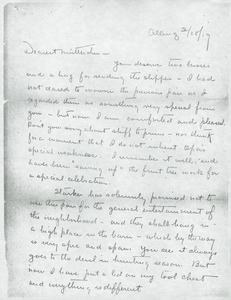 Albany 3/15/19
Dearest
You deserve two kisses
and a hug for sending the slippers - I had
not dared to the previous pair as I
regarded them as something very special from
you - but now I am comforted and pleased.
Don't you worry about stuff to prune - not think
for a moment that I do not intend to
special weakness. I remember it well, and
have been saving up the fruit tree work for
a special celebration.
has solemnly promised not to
use this pan for the general entertainment of
the neighborhood - and they shall hang in
a high place in the barn - which by the way
is very spic and span. You see it always
goes to the devil in hunting season. But
now I have put a lid on my tool chest
and everything is different.